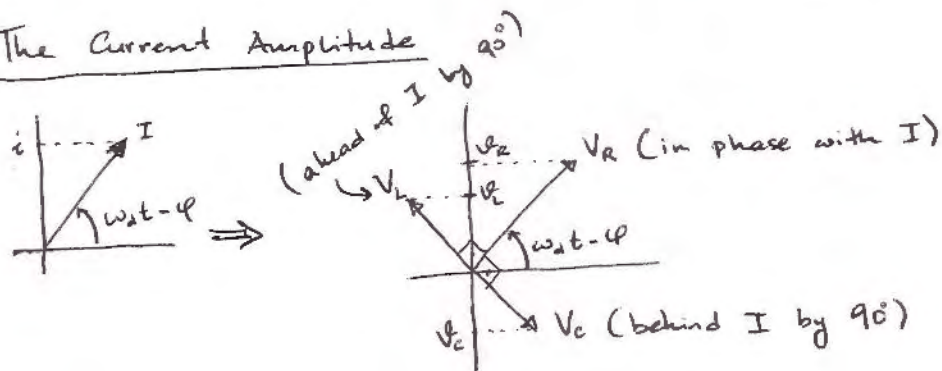 The Current Amplitude
(ahead of I by 90°)
i
I
ω_d t - φ
⇒
V_L
v_R
v_L
V_R (in phase with I)
ω_d t - φ
v_c
V_c (behind I by 90°)